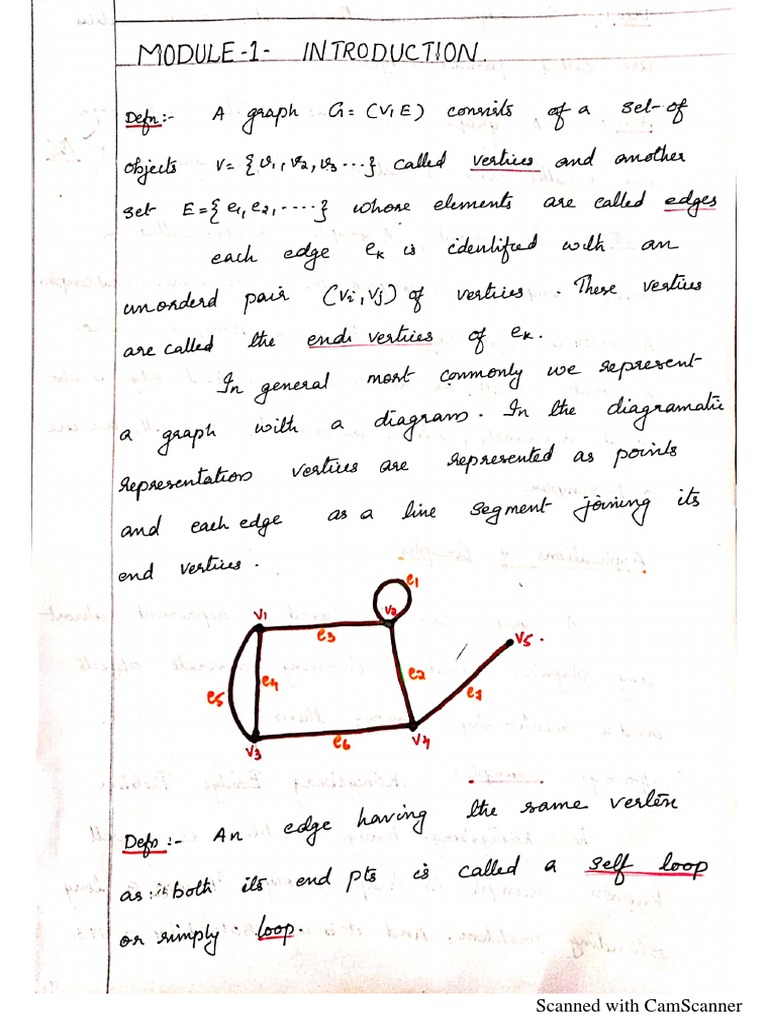 MODULE-1- INTRODUCTION.
Defn:- A graph G=(V,E) consists of a set of
objects V={v1,v2,v3...} called vertices and another
set E={e1,e2,....} whose elements are called edges
each edge ek is identified with an
unorderd pair (vi,vj) of vertices. These vertices
are called the end vertices of ek.
In general most commonly we represent
a graph with a diagram. In the diagramatic
representation vertices are represented as points
and each edge as a line segment joining its
end vertices.
e1
v1 v2
e3 v5.
e4 e2
e5 e7
e6
v3 v4
Defn:- An edge having the same vertex
as both its end pts is called a self loop
or simply loop.
Scanned with CamScanner